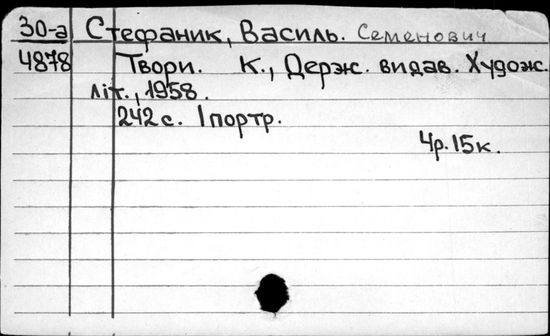 30-а Стефаник, Василь. Семенович
4878 Твори. К., Держ. видав. Худож.
літ., 1958.
242 с. 1 портр.
4р. 15к.